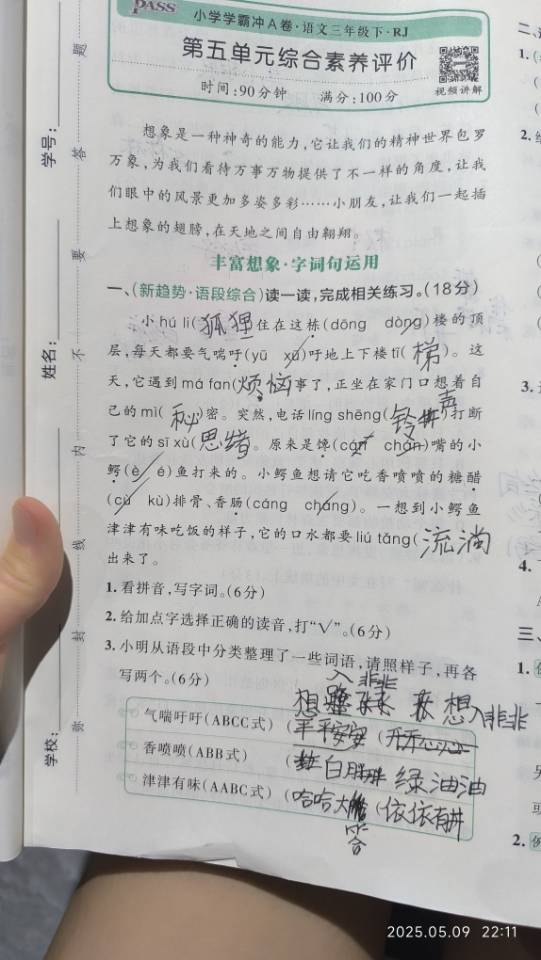 PASS
小学学霸冲A卷·语文三年级下·RJ
第五单元综合素养评价
时间:90分钟 满分:100分
视频讲解
想象是一种神奇的能力,它让我们的精神世界包罗
万象,为我们看待万事万物提供了不一样的角度,让我
们眼中的风景更加多姿多彩……小朋友,让我们一起插
上想象的翅膀,在天地之间自由翱翔。
丰富想象·字词句运用
一、(新趋势·语段综合)读一读,完成相关练习。(18分)
小hú li(狐狸住在这栋(dōng dòng)楼的顶
层,每天都要气喘吁(yū xū)吁地上下楼tī(梯)。这
天,它遇到má fan(烦恼事了,正坐在家门口想着自
己的mì(秘)密。突然,电话líng shēng(铃声)打断
了它的sī xù(思绪。原来是馋(cán chán)嘴的小
鳄(è é)鱼打来的。小鳄鱼想请它吃香喷喷的糖醋
(cù kù)排骨、香肠(cáng cháng)。一想到小鳄鱼
津津有味吃饭的样子,它的口水都要liú tǎng(流淌
出来了。
1.看拼音,写字词。(6分)
2.给加点字选择正确的读音,打“√”。(6分)
3.小明从语段中分类整理了一些词语,请照样子,再各
写两个。(6分)
气喘吁吁(ABCC式)(平平安安(开开心心
想入非非
香喷喷(ABB式)(白胖胖 绿油油
津津有味(AABC式)(哈哈大笑(依依有
学号:
姓名:
学校:
题
答
要
不
内
线
封
弥
2025.05.09 22:11